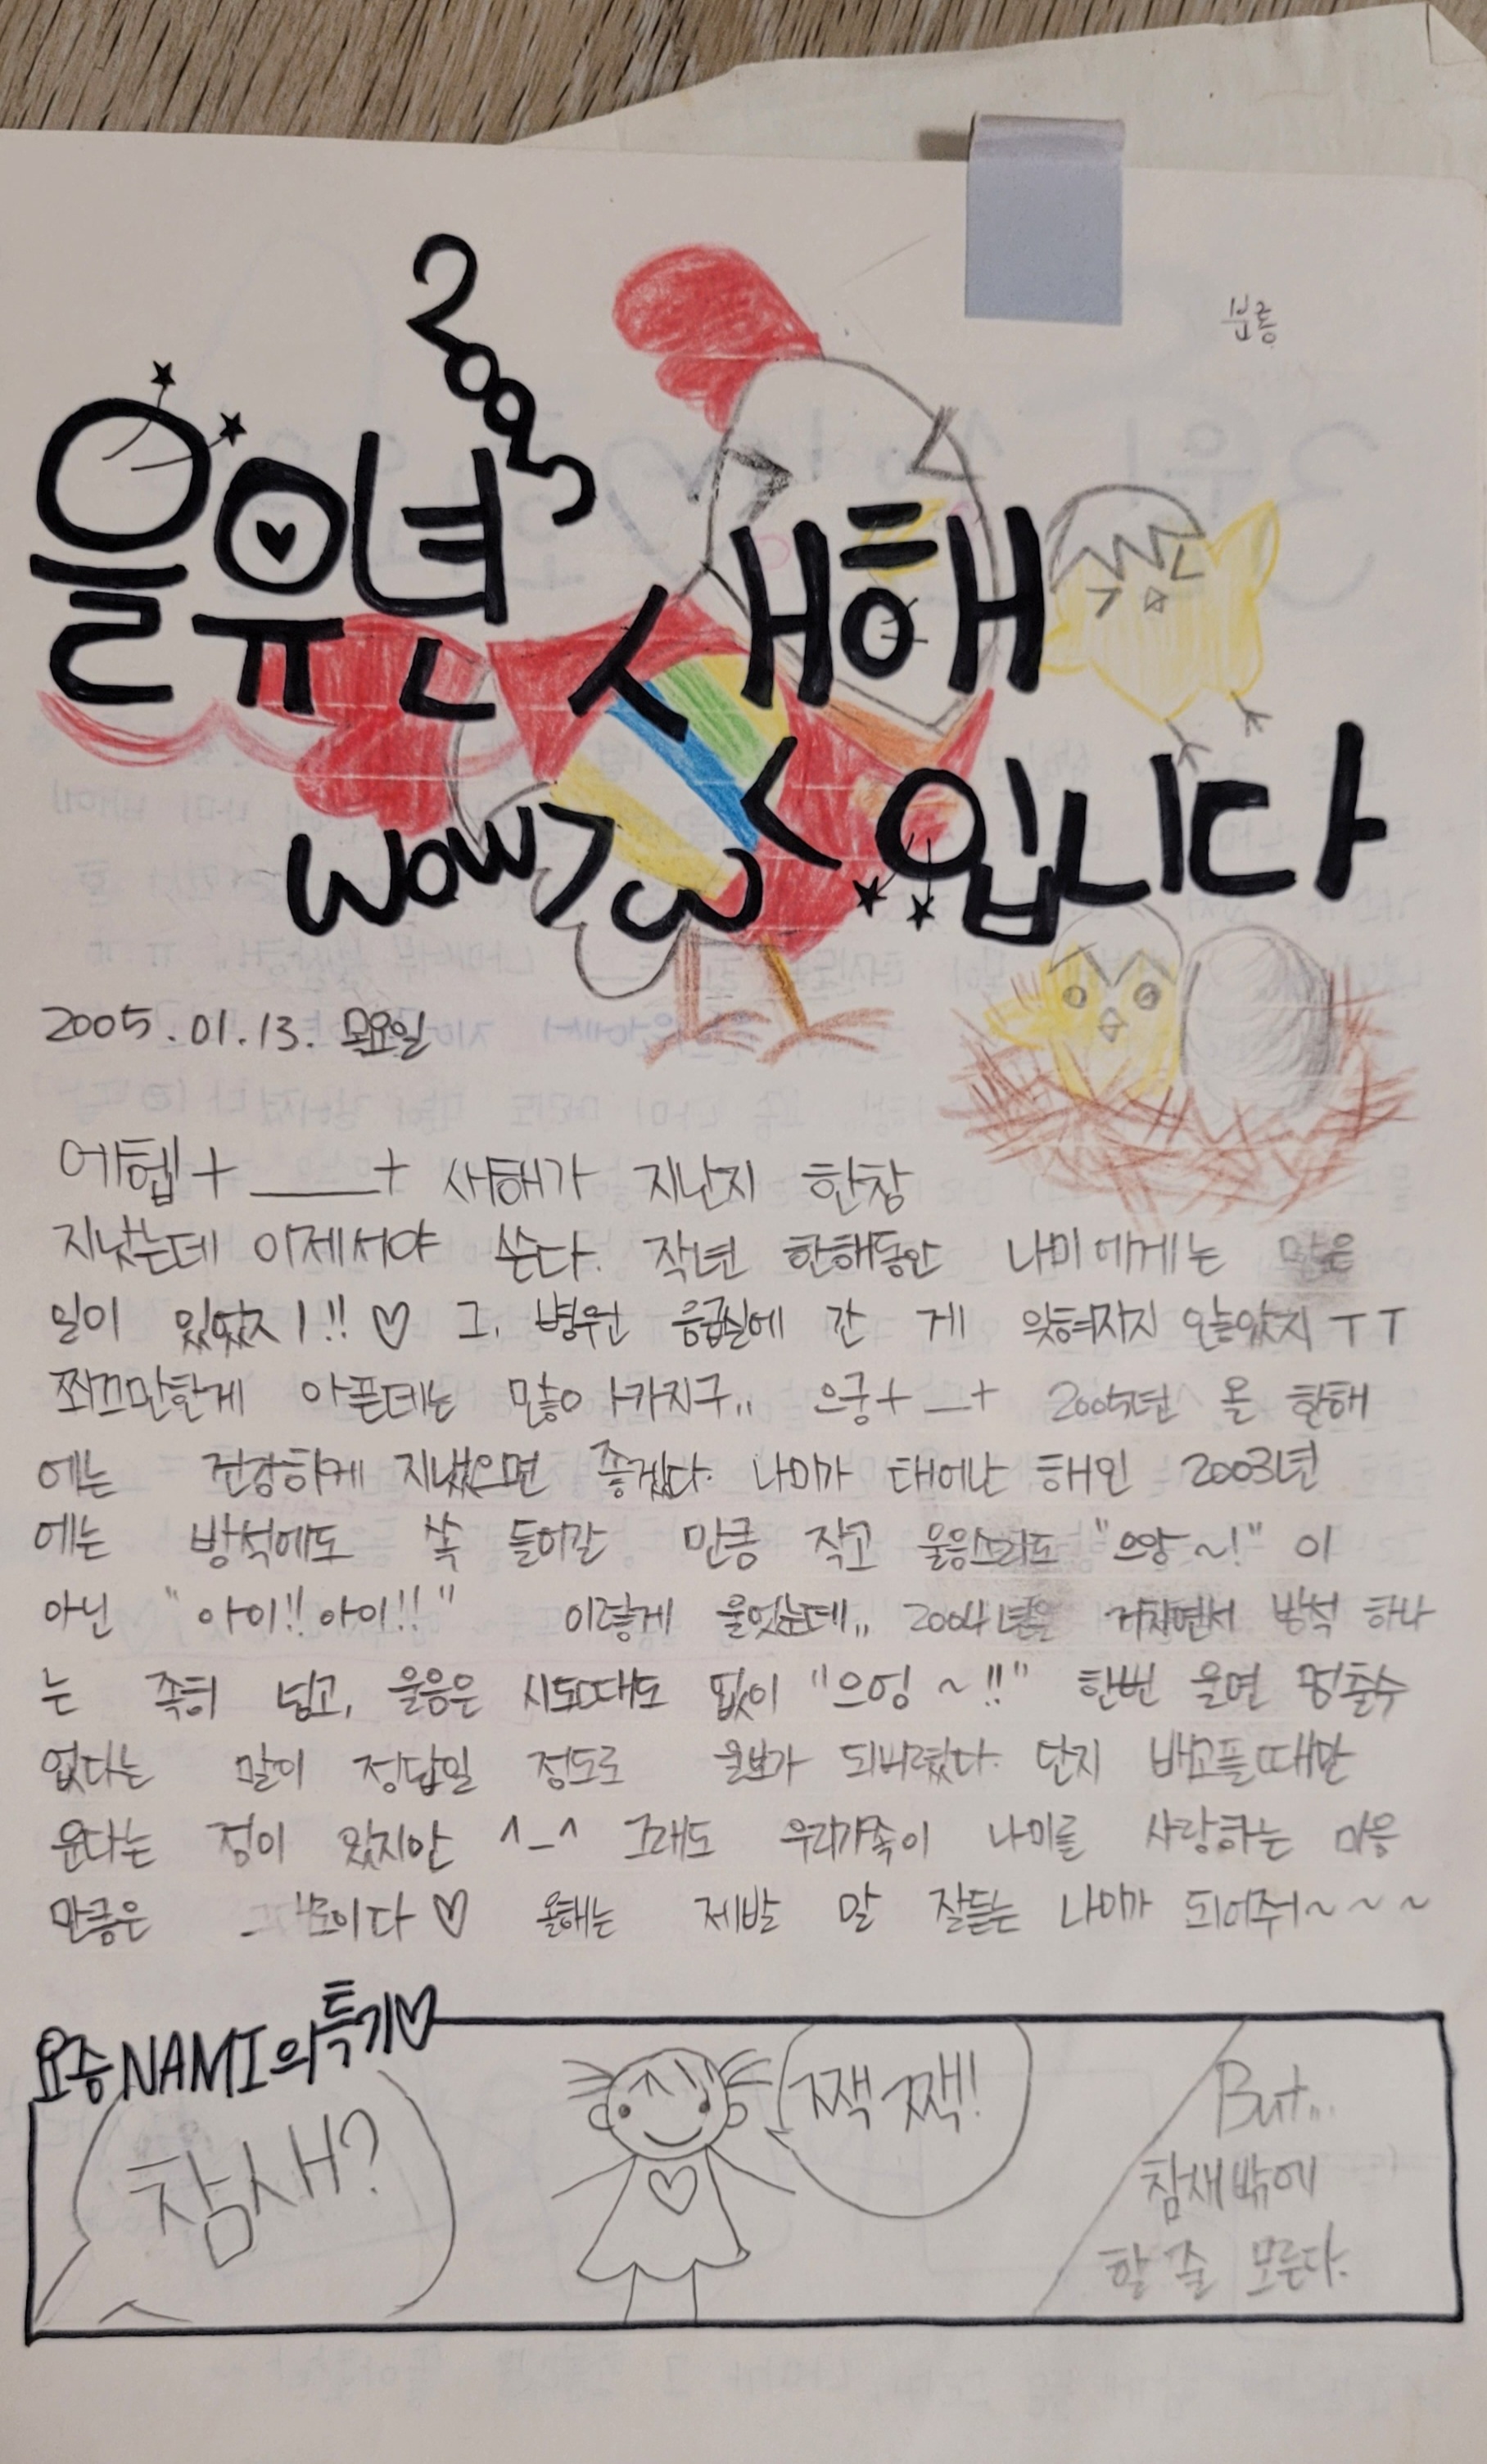 2005
을유년 새해
wow >ω< 입니다
분홍
2005. 01. 13. 목요일
에헵+____+ 새해가 지난지 한참
지났는데 이제서야 쓴다. 작년 한해동안 나미에게는 많은
일이 있었지!! ♡ 그, 병원 응급실에 간 게 잊혀지지 않았지 ㅜㅜ
쬐끄만한게 아픈데는 많아가지구.. 으궁+_+ 2005년 올 한해
에는 건강하게 지냈으면 좋겠다. 나미가 태어난 해인 2003년
에는 방석에도 쏙 들어갈 만큼 작고 울음소리도 "으앙~!" 이
아닌 "아이!! 아이!!" 이렇게 울었는데.. 2004년을 거치면서 방석 하나
는 족히 넘고, 울음은 시도때도 없이 "으엉~!!" 한번 울면 멈출수
없다는 말이 정답일 정도로 울보가 되버렸다. 단지 배고플때만
운다는 점이 있지만 ^-^ 그래도 우리가족이 나미를 사랑하는 마음
만큼은 그대로이다 ♡ 올해는 제발 말 잘듣는 나미가 되어줘~~~
요즘 NAMI의 특기♡
참새?
짹 짹!
But...
참새밖에
할 줄 모른다.